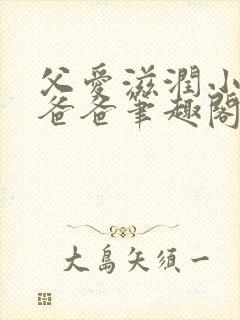 父愛滋潤小
爸爸筆趣閣
大島矢須一